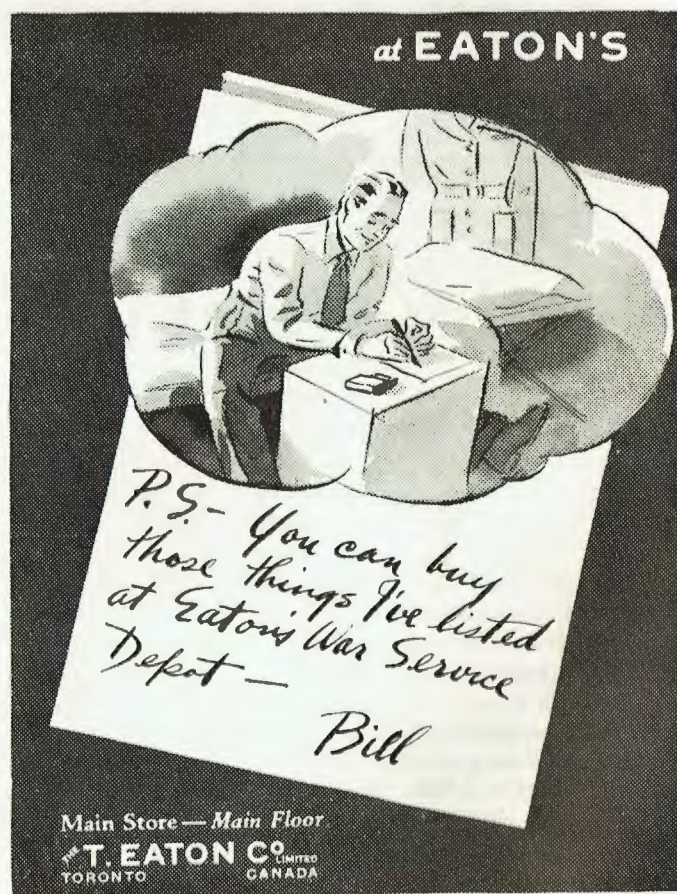 at EATON'S
P.S- You can buy
those things I've listed
at Eaton's War Service
Depot —
Bill
Main Store — Main Floor
THE T. EATON CO LIMITED
TORONTO CANADA